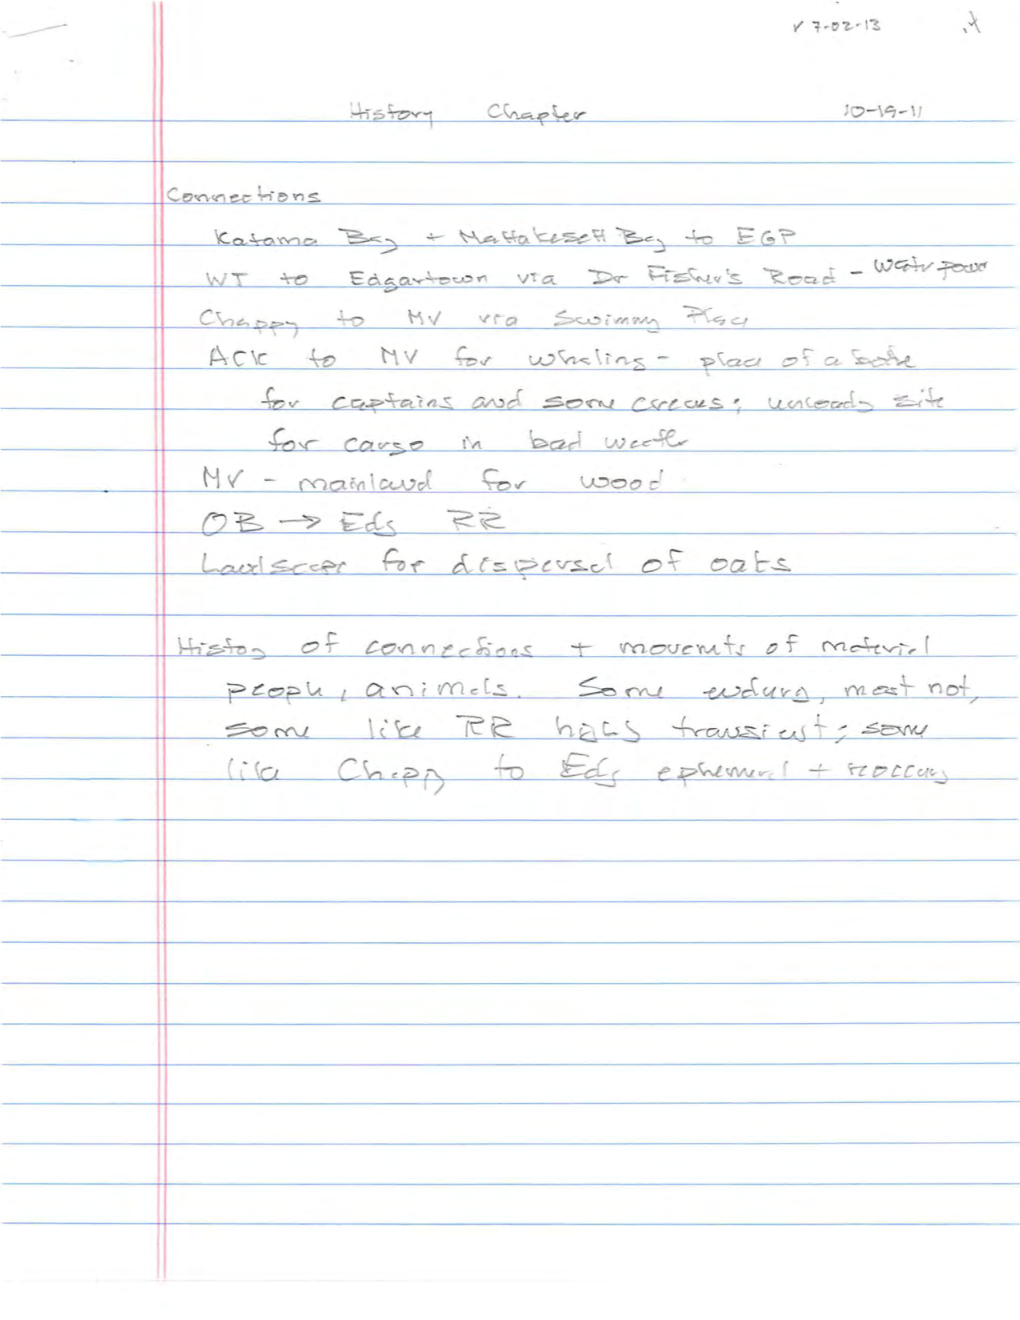 ✓ 7-02-13
History Chapter 10-19-11
Connections
Katama Bay + Mattakesett Bay to EGP
WT to Edgartown via Dr Fisher's Road - Water power
Chappy to MV via Swimmy Place
ACK to MV for whaling - place of a
for captains and some crews; unloady site
for cargo in bad weather
MV - mainland for wood
OB → Edg RR
Landscape for dispersal of oats
History of connections + movements of material
people, animals. Some endure, most not,
some like RR transient; some
like Chappy to Edg ephemeral +